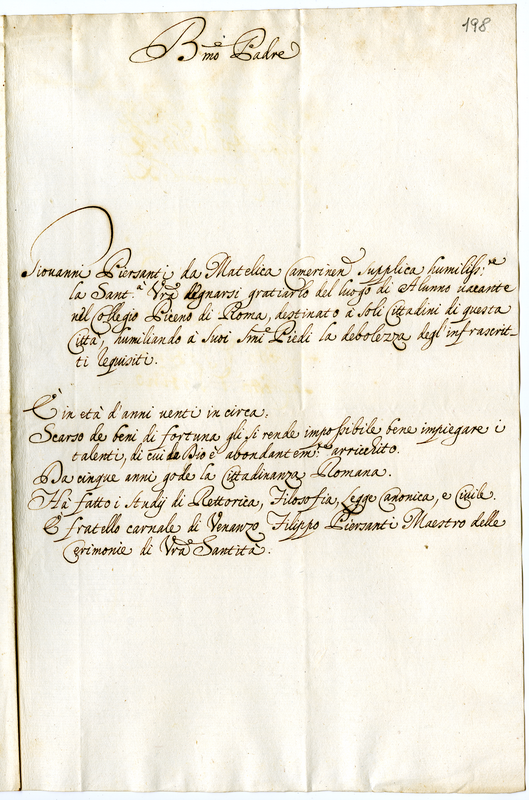 198
Bmo Padre
Giovanni Piersanti da Matelica Camerinen supplica humiliss:te
la Sant.à Vra degnarsi gratiarlo del luogo di Alunno uacante
nel Collegio Piceno di Roma, destinato à soli Cittadini di questa
Città, humiliando à suoi Smi Piedi la debolezza degl'infrascrit-
ti requisiti.
E' in età d'anni venti in circa.
Scarso de beni di fortuna gli si rende impossibile bene impiegare i
talenti, di cui da Dio è abondantem.e arricchito.
Da cinque anni gode la Cittadinanza Romana.
Hà fatto i studij di Rettorica, Filosofia, Legge Canonica, e Ciuile.
E' fratello carnale di Venanzo Filippo Piersanti Maestro delle
Cerimonie di Vra Santità.